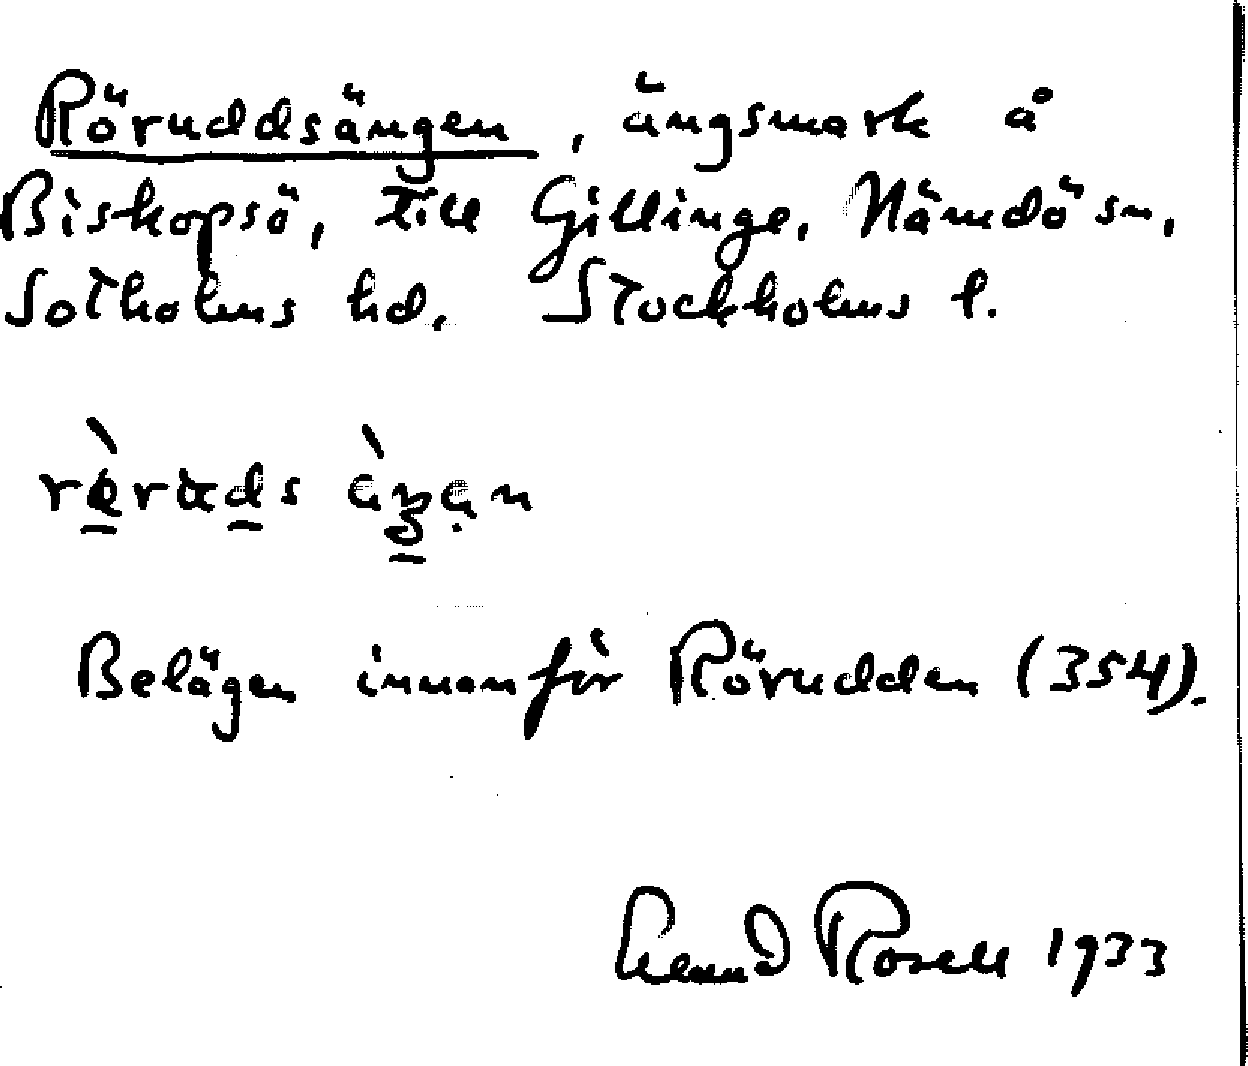 Röruddsängen, ängsmark å
Biskopsö, till Gillinge, Nämdö sn,
Sotholms hd. Stockholms l.
Belägen innanför Rörudden (354).
Rosell 1933